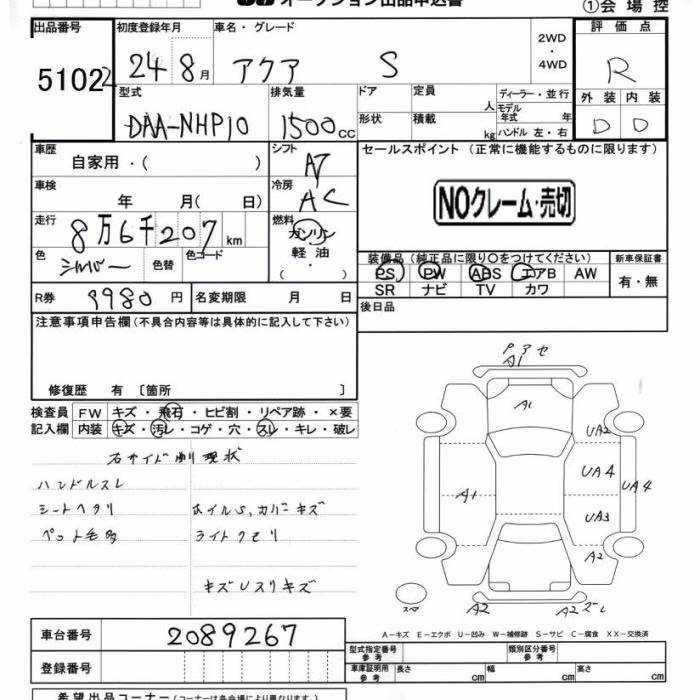 オークション出品申込書
①会場控
出品番号 初度登録年月 車名・グレード 2WD・4WD 評価点
5102 24 8月 アクア S R
型式 排気量 ドア 定員 人 ディーラー・並行 外装 内装
DAA-NHP10 1500cc 形状 積載 kg モデル年式 年 ハンドル 左・右 D D
車歴 シフト セールスポイント (正常に機能するものに限ります)
自家用・( ) AT
車検 冷房
年 月( 日) AC NOクレーム・売切
走行 燃料
8万6千207km ガソリン
軽油
・
( )
色 色替 色コード 装備品 (純正品に限り○をつけてください) 新車保証書
シルバー PS PW ABS エアB AW 有・無
SR ナビ TV カワ
R券 9980円 名変期限 月 日 後日品
注意事項申告欄(不具合内容等は具体的に記入して下さい)
修復歴 有 〔箇所 〕
検査員 FW キズ・飛石・ヒビ割・リペア跡・×要
記入欄 内装 キズ・汚レ・コゲ・穴・スレ・キレ・破レ
右サイド 現状
ハンドルスレ
シートヘタリ ホイルS,カバーキズ
ペット毛多 ライトクモリ
キズUスリキズ
A1
A1
UA2
UA4
UA4
A1
UA3
A2
スペア
A2
A2 ズレ
A-キズ E-エクボ U-凹み W-補修跡 S-サビ C-腐食 XX-交換済
車台番号 2089267
登録番号
型式指定番号 参考 類別区分番号 参考
車庫証明用 参考 長さ cm 幅 cm 高さ cm
希望出品コーナー(コーナーは各会場により異なります。)